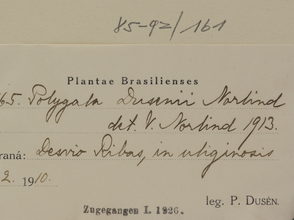 85-92/161
Plantae Brasilienses
65. Polygala Dusenii Norlind
det. V. Norlind 1913.
raná: Desvio Ribas, in uliginosis
2. 1910.
leg. P. DUSÉN.
Zugegangen I. 1926.